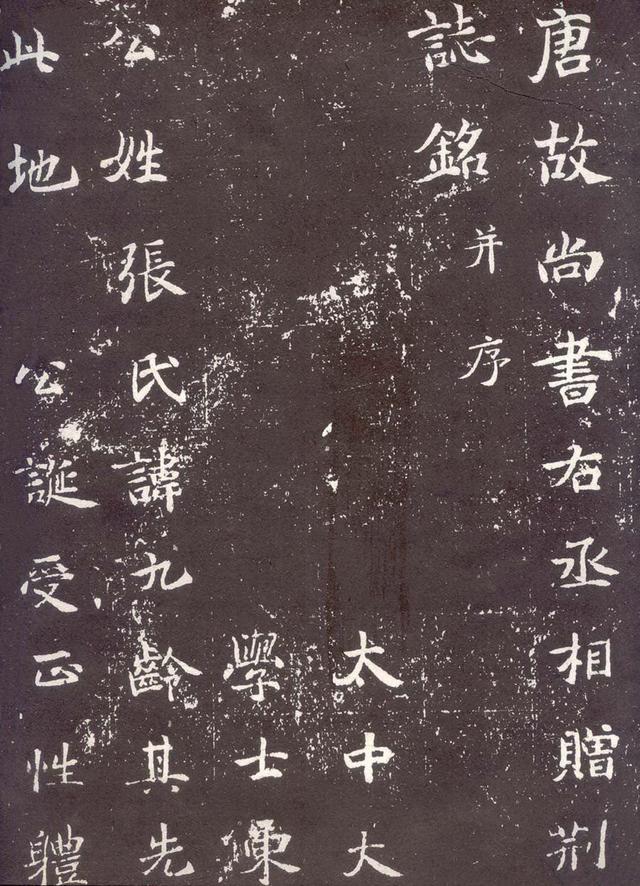 唐故尚書右丞相贈荆
誌銘并序
太中大
學士東
公姓張氏諱九齡其先
此地 公誕受正性體